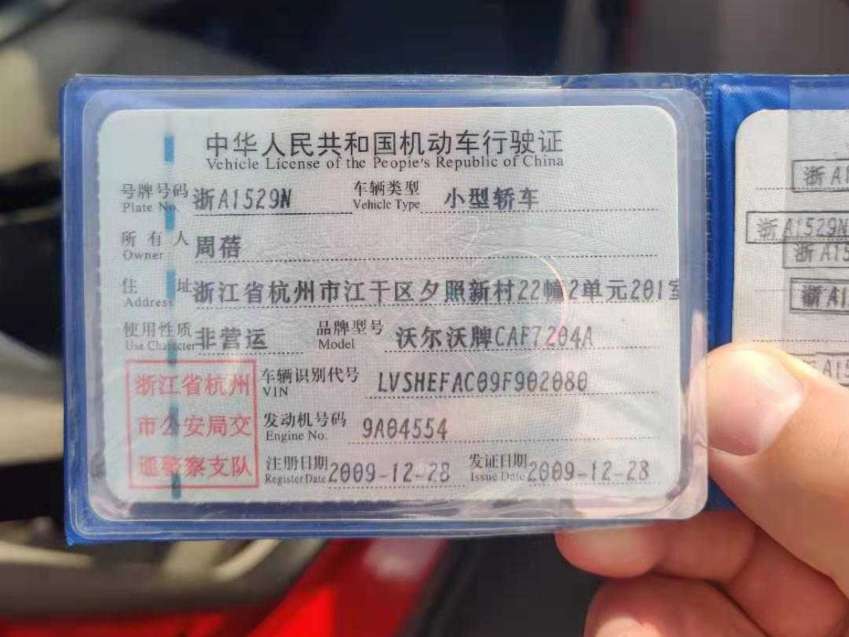 中华人民共和国机动车行驶证
Vehicle License of the People's Republic of China
号牌号码 浙A1529N 车辆类型 小型轿车
Plate No. Vehicle Type
所有人 周蓓
Owner
住址 浙江省杭州市江干区夕照新村22幢2单元201室
Address
使用性质 非营运 品牌型号 沃尔沃牌CAF7204A
Use Character Model
浙江省杭州
市公安局交
通警察支队
车辆识别代号 LVSHEFAC09F902080
VIN
发动机号码 9A04554
Engine No.
注册日期 2009-12-28 发证日期 2009-12-28
Register Date Issue Date
浙A1
浙A1529N
浙A15
浙A1
A15